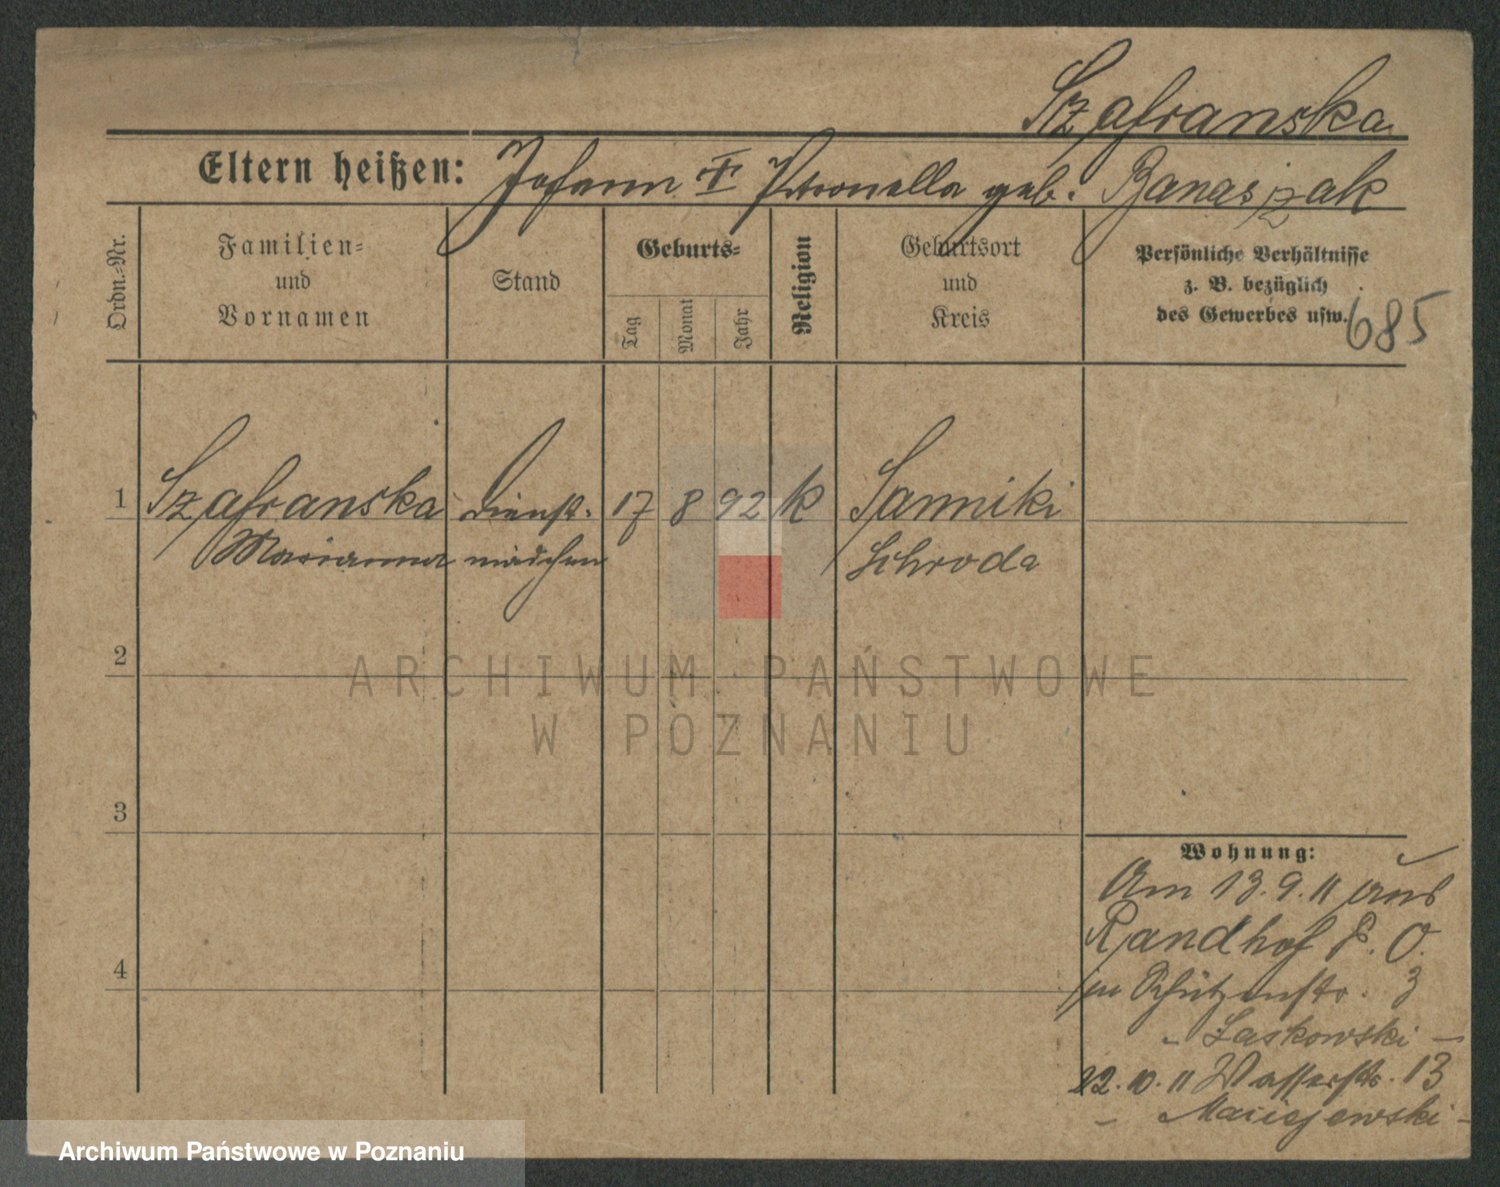 Szafranska
Eltern heißen: Johann I Petronella geb. Banaszak
Ordn.-Nr.
Familien-
und
Vornamen
Stand
Geburts-
Tag
Monat
Jahr
Religion
Geburtsort
und
Kreis
Persönliche Verhältnisse
z. B. bezüglich
des Gewerbes usw.
685
1 Szafranska Dienst- 17 8 92 k Sanniki
Marianna mädchen Schroda
2
ARCHIWUM PAŃSTWOWE
W POZNANIU
3
Wohnung:
Am 13.9.11 aus
Randhof P. O.
4
zu Schützenstr. 3
- Laskowski -
22.10.11 Wasserstr. 13
- Maciejewski -
Archiwum Państwowe w Poznaniu